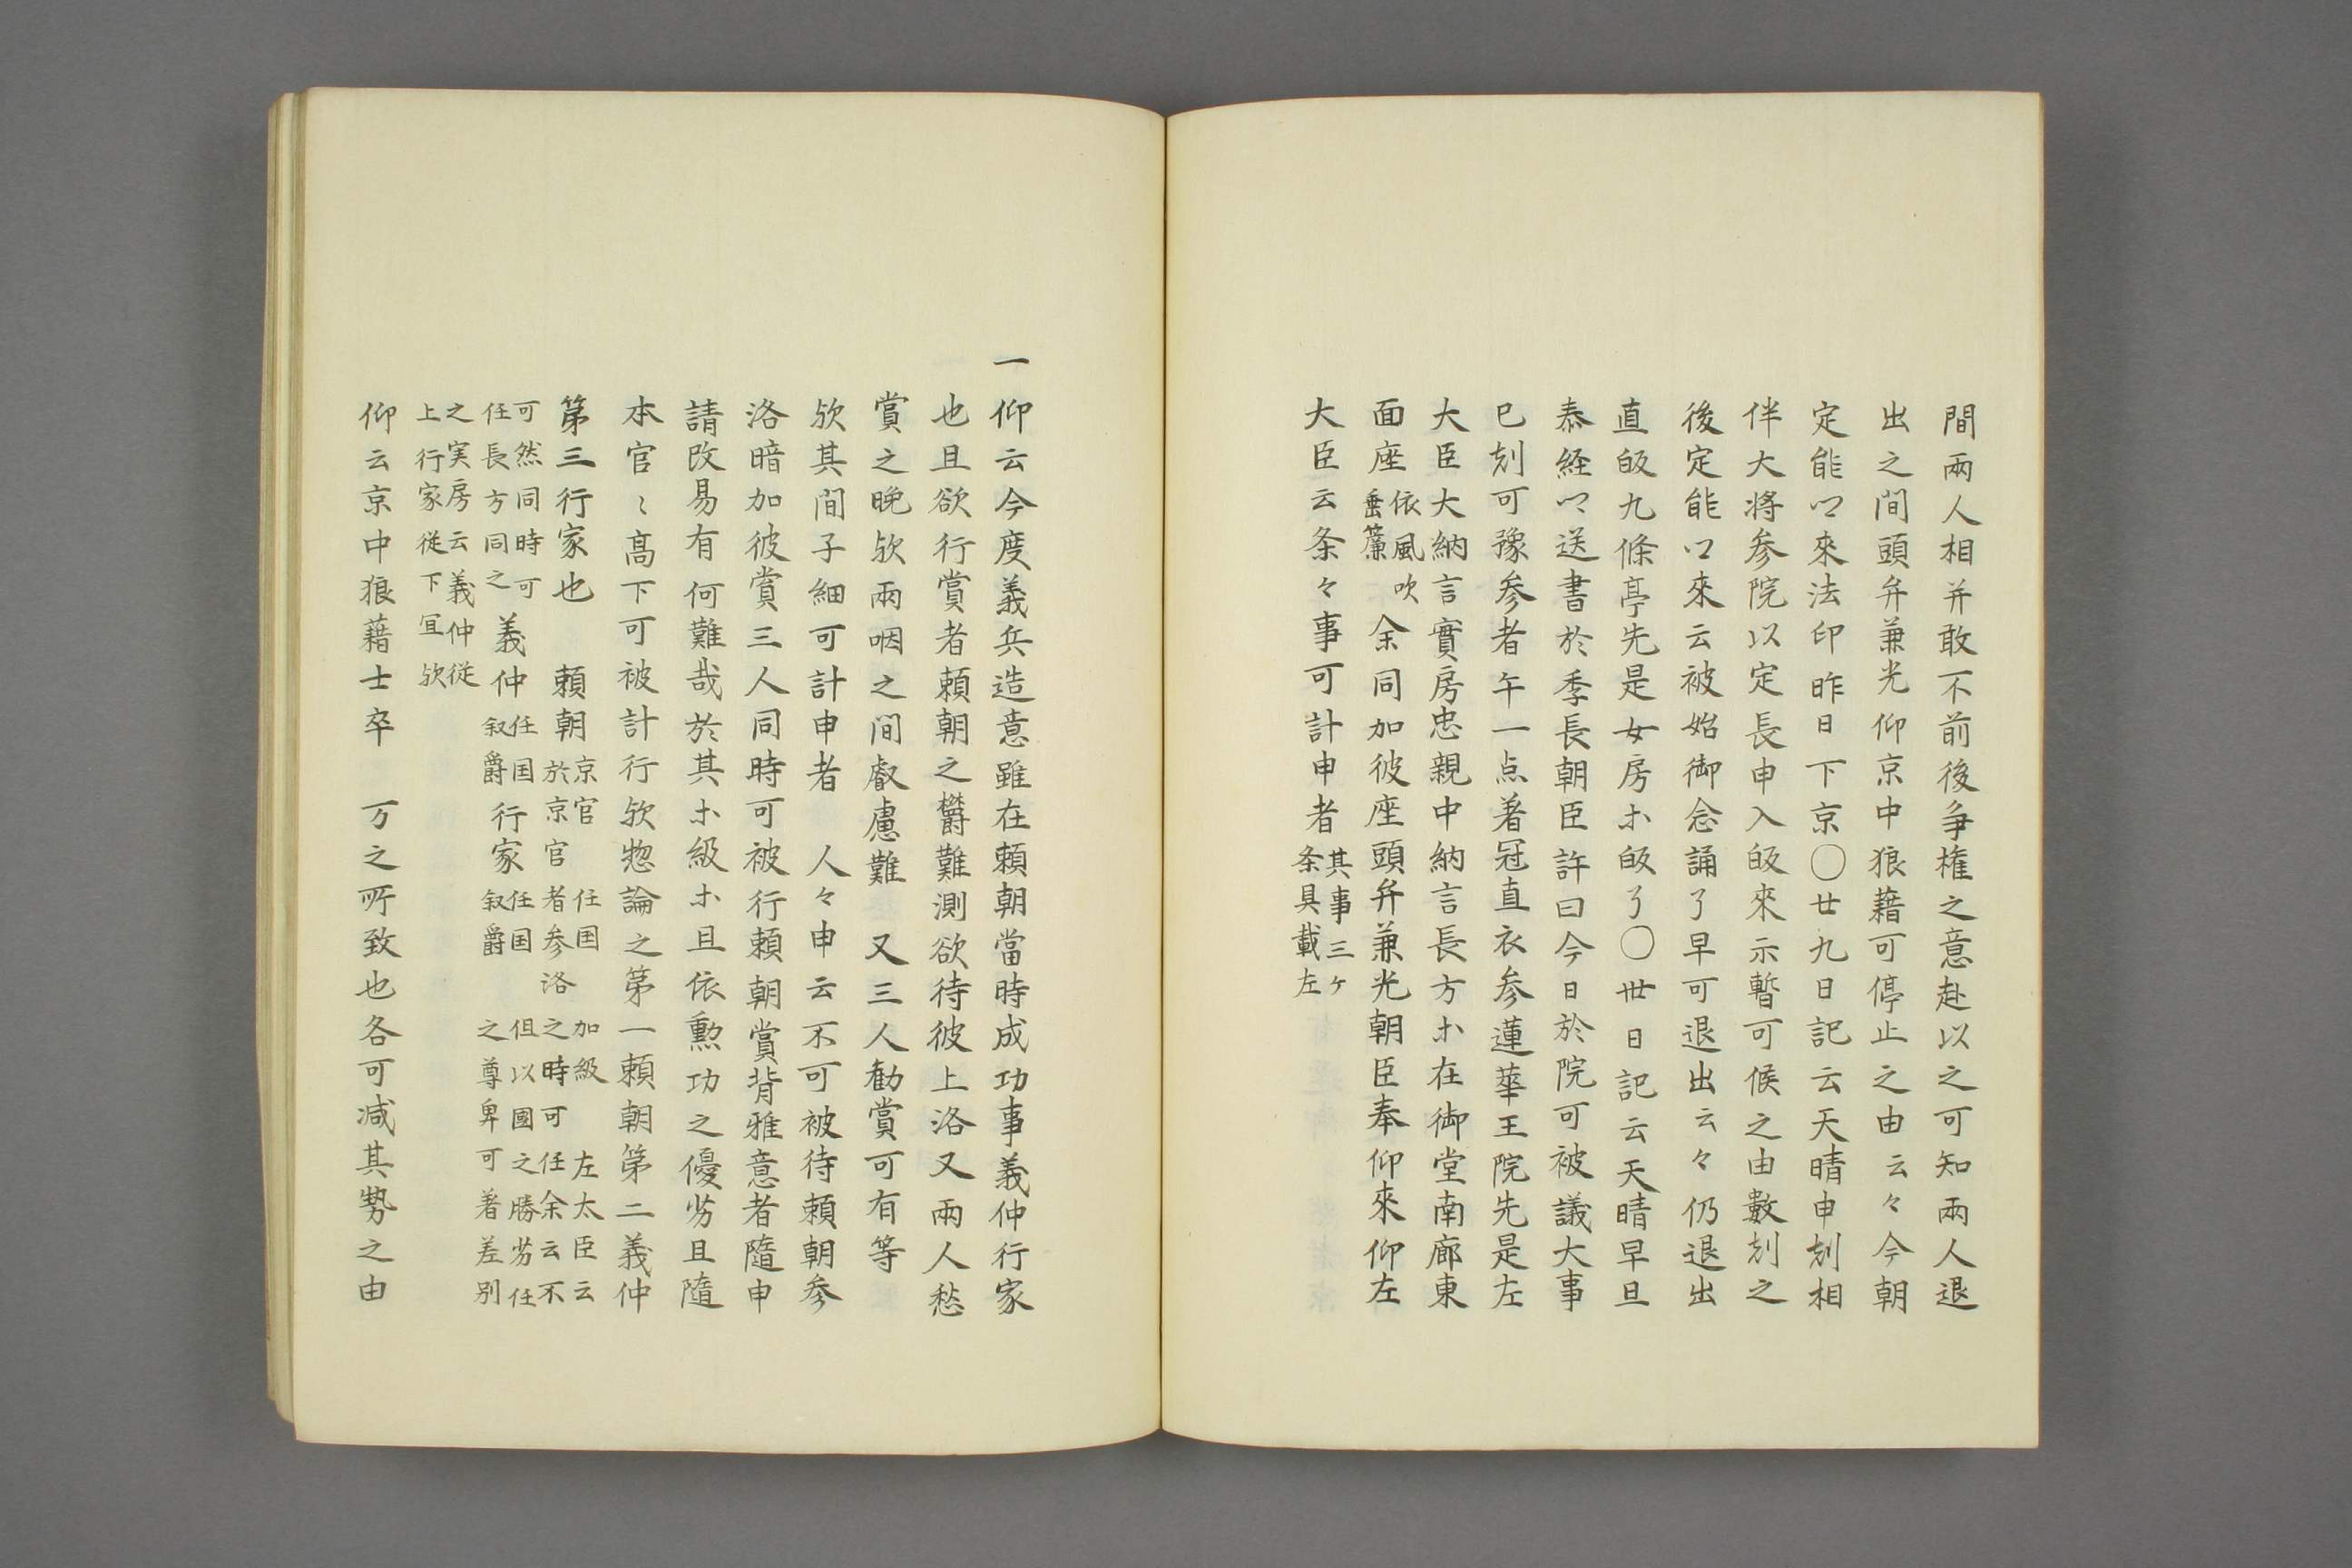 間兩人相并敢不前後爭権之意赴以之可知兩人退
出之間頭弁兼光仰京中狼藉可停止之由云々今朝
定能卿來法印昨日下京〇廿九日記云天晴申刻相
伴大将参院以定長申入皈來示暫可候之由數刻之
後定能卿來云被始御念誦了早可退出云々仍退出
直皈九條亭先是女房ホ皈了〇丗日記云天晴早旦
泰経卿送書於季長朝臣許曰今日於院可被議大事
巳刻可豫参者午一点著冠直衣参蓮華王院先是左
大臣大納言實房忠親中納言長方ホ在御堂南廊東
面座依風吹垂簾余同加彼座頭弁兼光朝臣奉仰來仰左
大臣云条々事可計申者其事三ヶ条具載左
一仰云今度義兵造意雖在頼朝當時成功事義仲行家
也且欲行賞者頼朝之欝難測欲待彼上洛又兩人愁
賞之晩欤兩咽之间叡慮難 又三人勧賞可有等
欤其间子細可計申者 人々申云不可被待頼朝参
洛暗加彼賞三人同時可被行頼朝賞背雅意者隨申
請改易有何難哉於其ホ級ホ且依勲功之優劣且隨
本官〻高下可被計行欤惣論之第一頼朝第二義仲
第三行家也 頼朝京官 任国 加級 左太臣云於京官者参洛之時可任余云不
可然同時可任長方同之義仲任国叙爵行家任国叙爵但以國之勝劣任之尊卑可著差別
之実房云義仲従上行家従下冝欤
仰云京中狼藉士卒 万之所致也各可减其勢之由